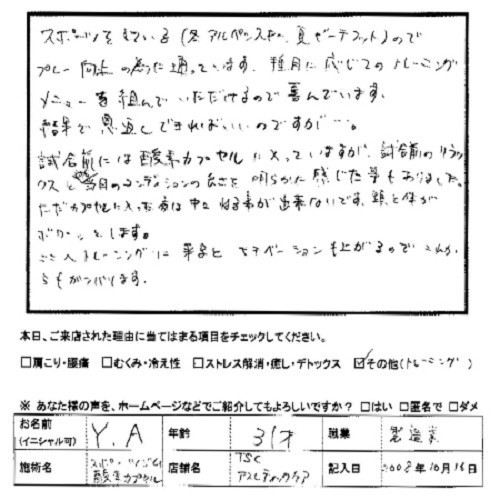 スポーツをしている(冬アルペンスキー、夏ビーチフット)ので
プレー向上の為に通っています。種目に応じてのトレーニング
メニューを組んでいただけるので喜んでいます。
結果で恩返しできればいいのですが…。
試合前には酸素カプセルに入っていますが、試合前のリラッ
クスと当日のコンディションの良さを明らかに感じた事もありました。
ただカプセルに入った夜は中々寝る事が出来ないです。頭と体が
します。
トレーニングに モチベーションも上がるので これか
らもがんばります。
本日、ご来店された理由に当てはまる項目をチェックしてください。
□肩こり・腰痛 □むくみ・冷え性 □ストレス解消・癒し・デトックス ☑その他(トレーニング)
※ あなた様の声を、ホームページなどでご紹介してもよろしいですか? □はい □匿名で □ダメ
お名前(イニシャル可) Y.A 年齢 31才 職業 製造業
施術名 酸素カプセル 店舗名 TSK アスレティックケア 記入日 2008年10月16日